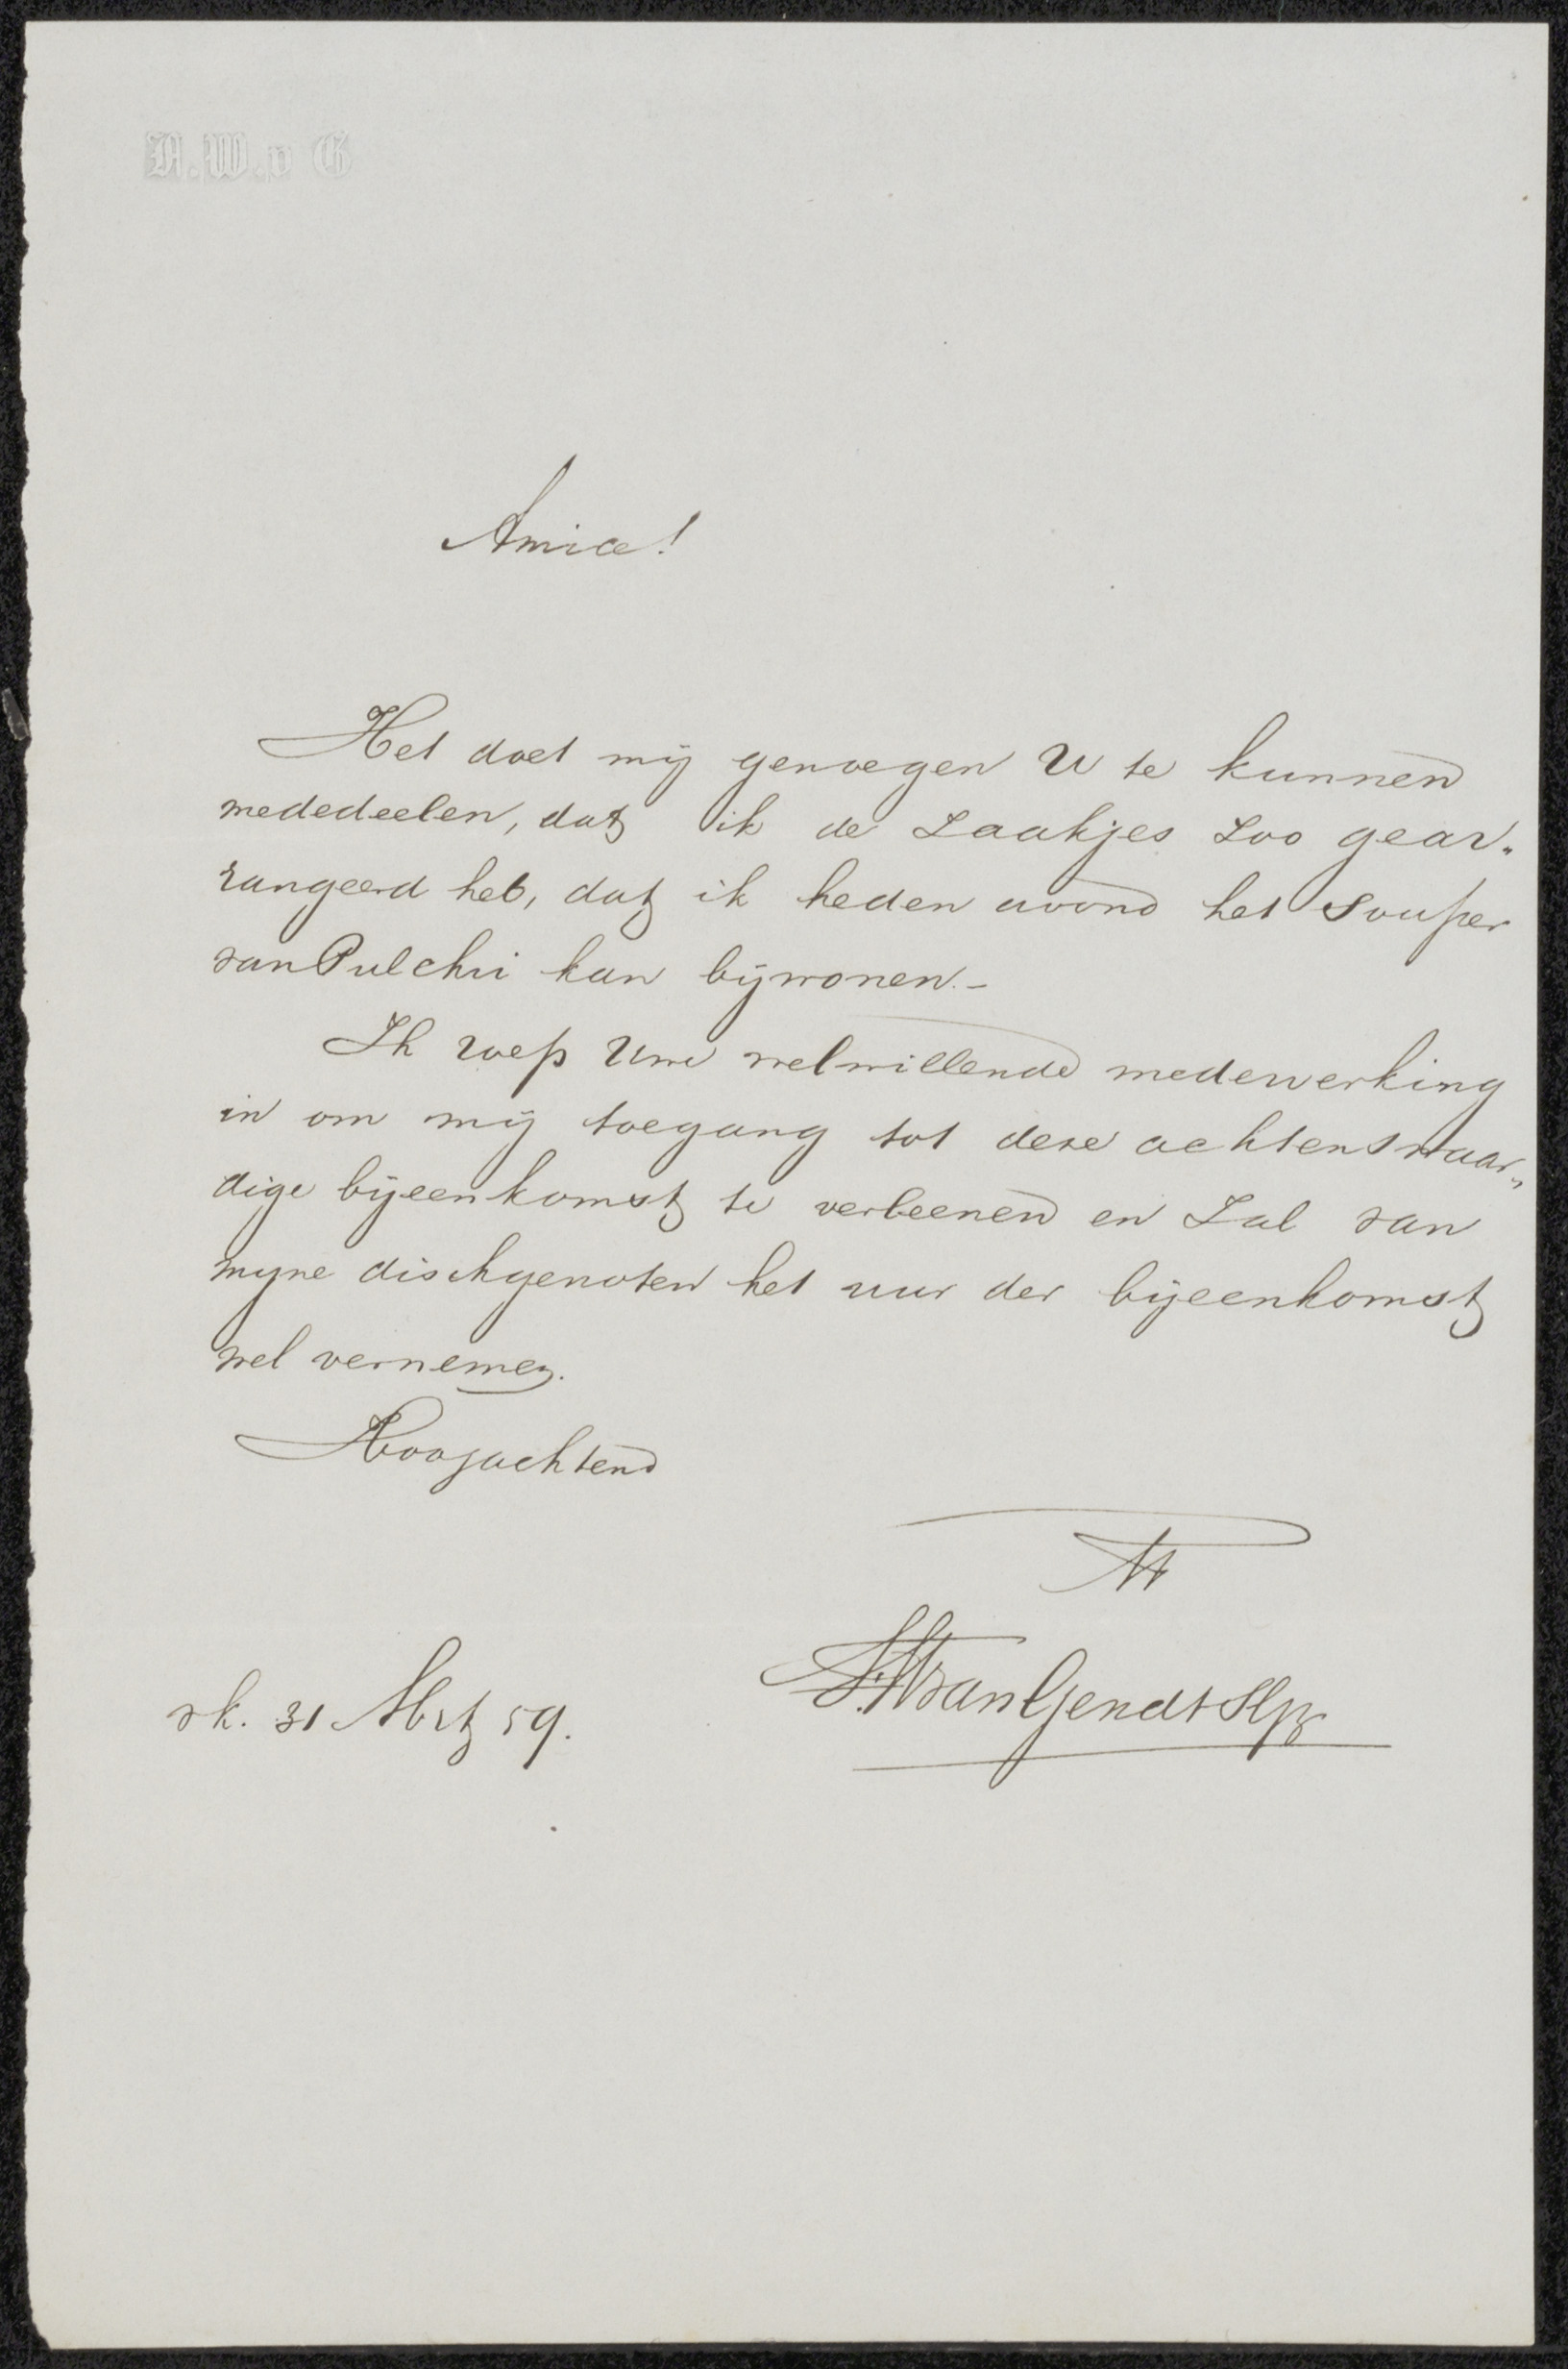 A.W.v G
Amice!
Het doet mij genoegen U te kunnen
mededeelen, dat ik de zaakjes zoo gear„
rangeerd heb, dat ik heden avond het souper
van Pulchri kan bijwonen.–
Ik roep Uwe welwillende medewerking
in om mij toegang tot deze achtenswaar„
dige bijeenkomst te verleenen en zal van
myne dischgenoten het uur der bijeenkomst
wel vernemen.
Hoogachtend
van Gendt
31 Mrt 59.